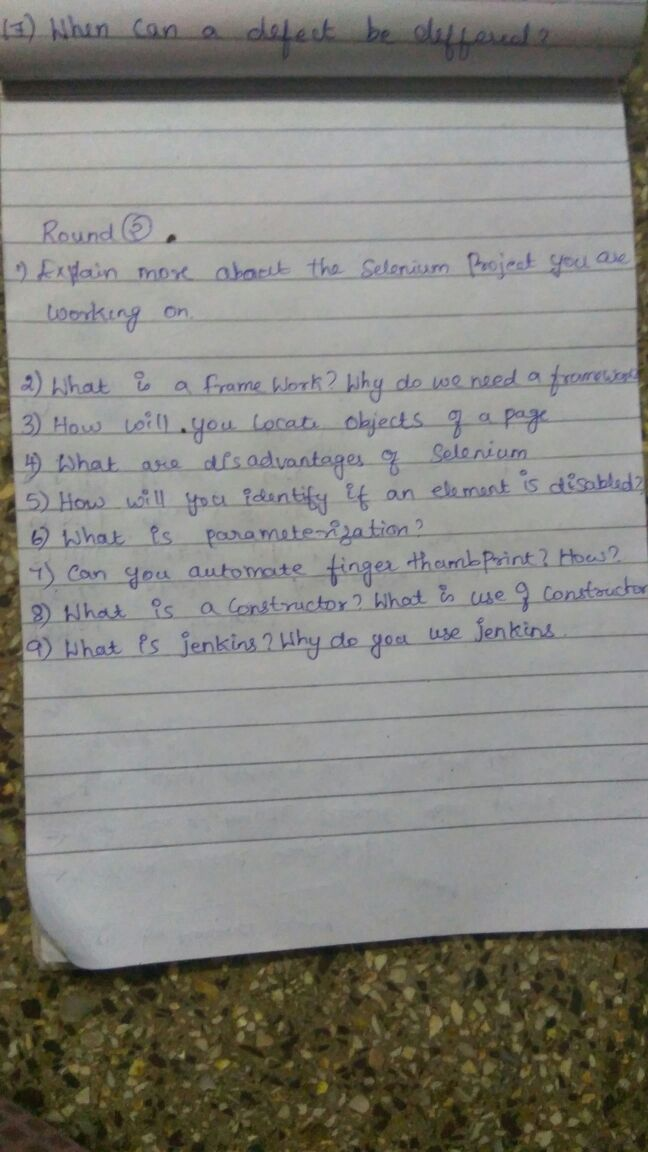 17) When can a defect be deffered?
Round ②.
1) Explain more about the Selenium Project you are
working on.
2) What is a frame work? Why do we need a framework
3) How will you locate objects of a page
4) What are disadvantages of Selenium
5) How will you identify if an element is disabled?
6) What is parameterization?
7) Can you automate finger thumbPrint? How?
8) What is a Constructor? What is use of Constructor
9) What is jenkins? Why do you use jenkins.